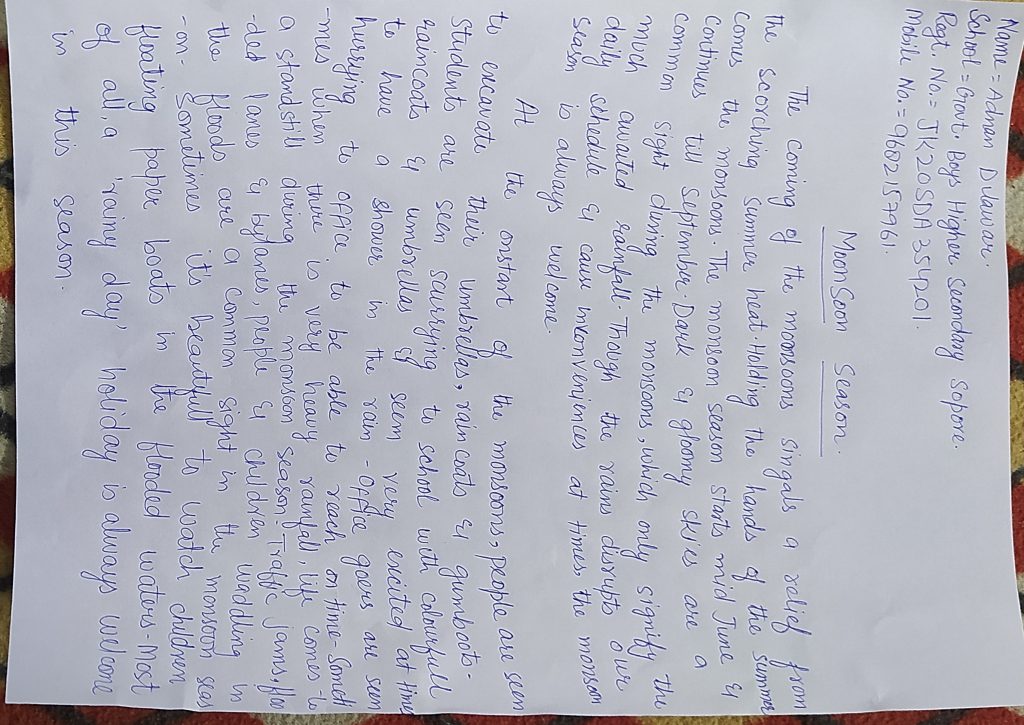 Name = Adnan Dilawar.
School = Govt. Boys Higher Secondary Sopore.
Regt. No. = JK20SDA354201.
Mobile No. = 9682157961.
Moonsoon Season.
The coming of the moonsoons singals a relief from
the scorching summer heat. Holding the hands of the summer
comes the monsoons. The monsoon season starts mid June &
continues till September. Dark & gloomy skies are a
common sight during the monsoons, which only signify the
much awaited rainfall. Though the rains disrupts our
daily schedule & cause inconveniences at times, the monsoon
season is always welcome.
At the onstart of the monsoons, people are seen
to excavate their umbrellas, raincoats & gumboots.
Students are seen scurrying to school with colourfull
raincoats & umbrellas & seem very excited at times
to have a shower in the rain - Office goers are seen
hurrying to office to be able to reach on time - Someti
-mes when there is very heavy rainfall, life comes to
a standstill during the monsoon season - Traffic jams, floo
-ded lanes & bylanes, people & children waddling in
the floods are a common sight in the monsoon seas
-on - Sometimes it's beautyfull to watch children
floating paper boats in the flooded waters - Most
of all, a 'rainy day' holiday is always welcome
in this season.